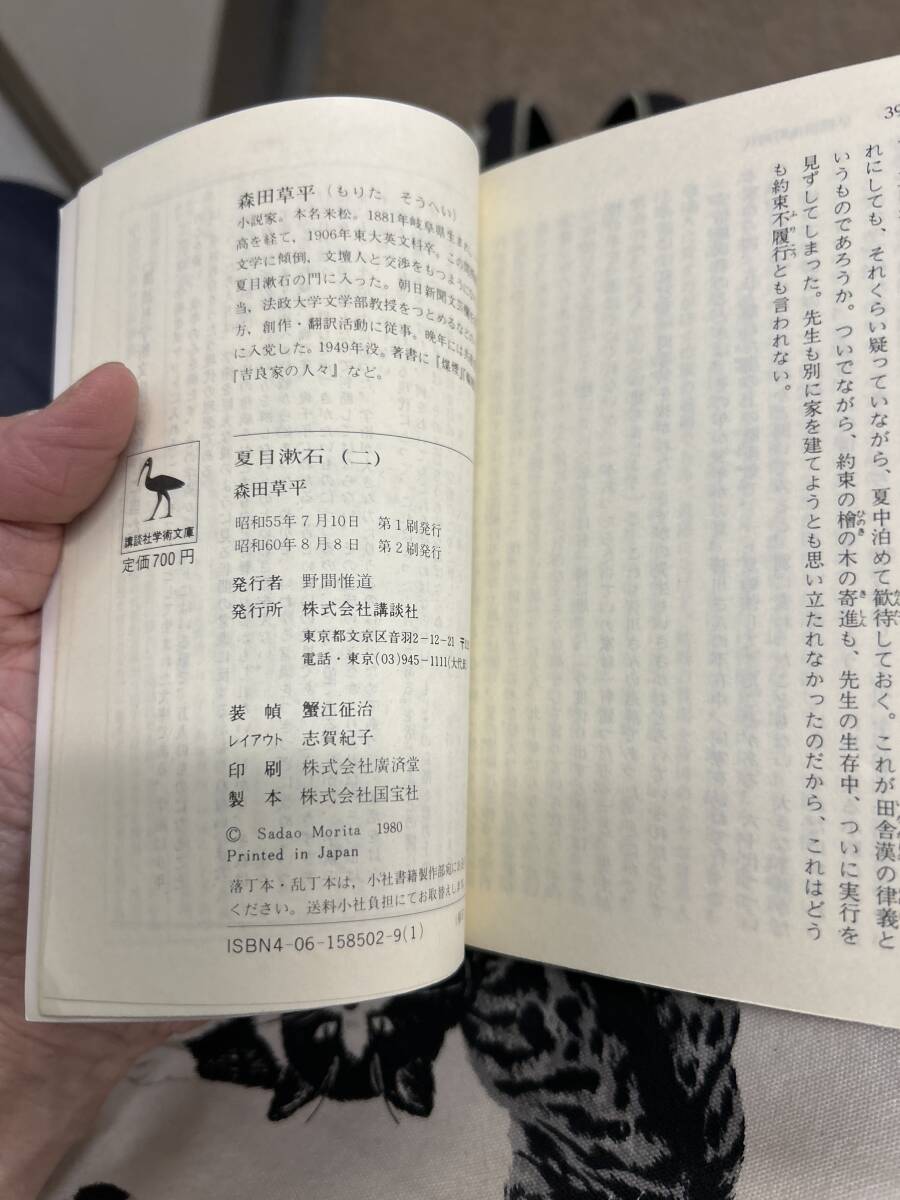 森田草平(もりた そうへい)
小説家。本名米松。1881年岐阜県生ま
高を経て，1906年東大英文科卒。この
文学に傾倒，文壇人と交渉をもつように
夏目漱石の門に入った。朝日新聞文芸欄
当，法政大学文学部教授をつとめるなど
方，創作・翻訳活動に従事。晩年には共
に入党した。1949年没。著書に『煤煙』
『吉良家の人々』など。
夏目漱石(二)
森田草平
昭和55年7月10日 第1刷発行
昭和60年8月8日 第2刷発行
発行者 野間惟道
発行所 株式会社講談社
東京都文京区音羽2-12-21 〒
電話・東京(03)945-1111(大代表
装 幀 蟹江征治
レイアウト 志賀紀子
印 刷 株式会社廣済堂
製 本 株式会社国宝社
© Sadao Morita 1980
Printed in Japan
落丁本・乱丁本は，小社書籍製作部宛にお
ください。送料小社負担にてお取替えしま
ISBN4-06-158502-9(1)
講談社学術文庫
定価700円
39
れにしても、それくらい疑っていながら、夏中泊めて歓待しておく。これが田舎漢の律義と
いうものであろうか。ついでながら、約束の檜の木の寄進も、先生の生存中、ついに実行を
見ずしてしまった。先生も別に家を建てようとも思い立たれなかったのだから、これはどう
も約束不履行とも言われない。